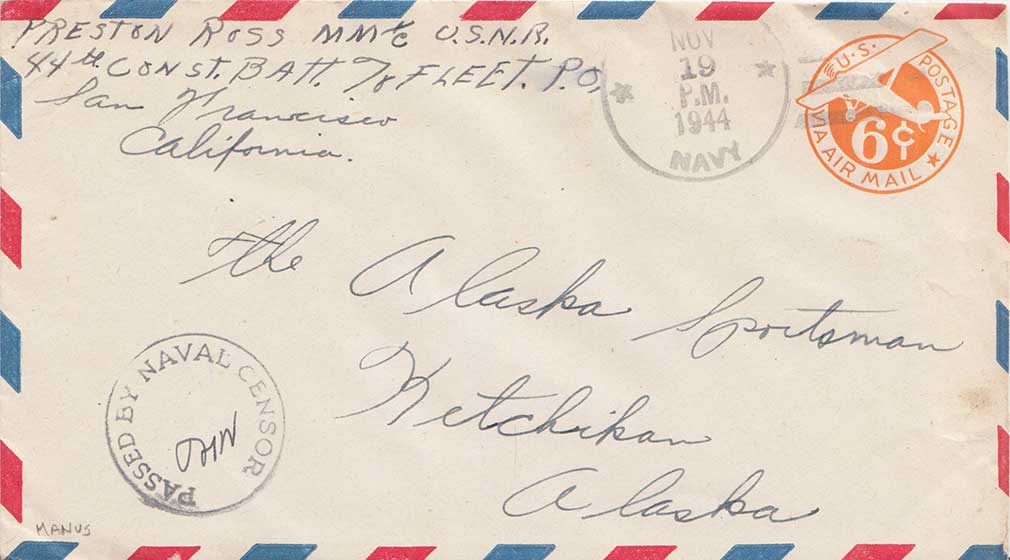 PRESTON ROSS MM1/c U.S.N.R.
44th CONST. BATT. % FLEET. P.O.
San Francisco
California.
NOV
19
P.M.
1944
NAVY
U.S. POSTAGE
6¢
VIA AIR MAIL
the Alaska Sportsman
Ketchikan
Alaska
PASSED BY NAVAL CENSOR
MANUS